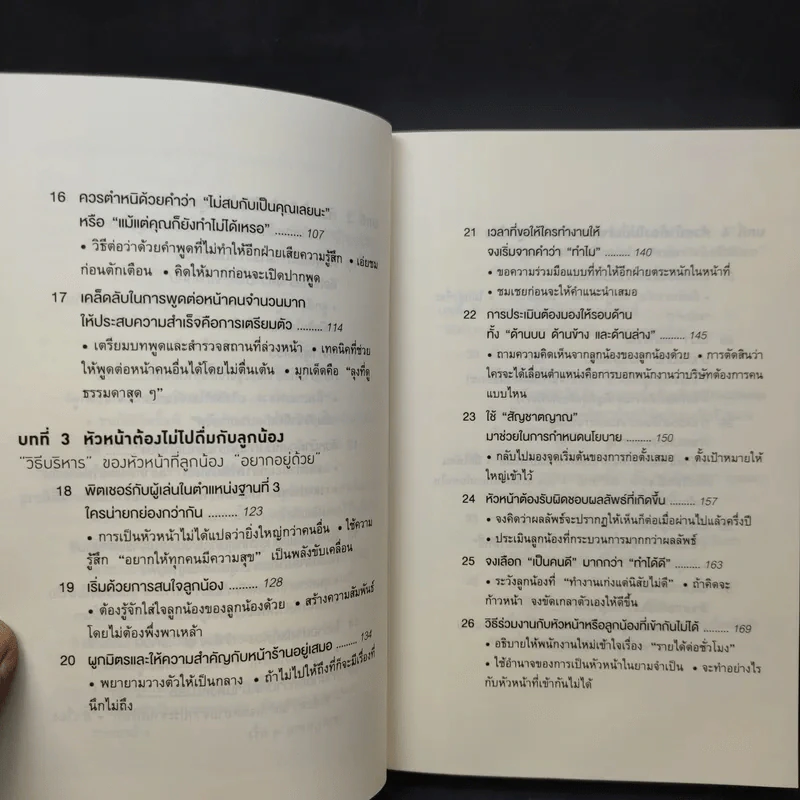 16 ควรตำหนิด้วยคำว่า “ไม่สมกับเป็นคุณเลยนะ”
หรือ “แม้แต่คุณก็ยังทำไม่ได้เหรอ” ......... 107
• วิธีต่อว่าด้วยคำพูดที่ไม่ทำให้อีกฝ่ายเสียความรู้สึก • เอ่ยชม
ก่อนตักเตือน • คิดให้มากก่อนจะเปิดปากพูด
17 เคล็ดลับในการพูดต่อหน้าคนจำนวนมาก
ให้ประสบความสำเร็จคือการเตรียมตัว ......... 114
• เตรียมบทพูดและสำรวจสถานที่ล่วงหน้า • เทคนิคที่ช่วย
ให้พูดต่อหน้าคนอื่นได้โดยไม่ตื่นเต้น • มุกเด็ดคือ “ลุงที่ดู
ธรรมดาสุด ๆ”
บทที่ 3 หัวหน้าต้องไม่ไปดื่มกับลูกน้อง
“วิธีบริหาร” ของหัวหน้าที่ลูกน้อง “อยากอยู่ด้วย”
18 พิตเชอร์กับผู้เล่นในตำแหน่งฐานที่ 3
ใครน่ายกย่องกว่ากัน ......... 123
• การเป็นหัวหน้าไม่ได้แปลว่ายิ่งใหญ่กว่าคนอื่น • ใช้ความ
รู้สึก “อยากให้ทุกคนมีความสุข” เป็นพลังขับเคลื่อน
19 เริ่มด้วยการสนใจลูกน้อง ......... 128
• ต้องรู้จักใส่ใจลูกน้องของลูกน้องด้วย • สร้างความสัมพันธ์
โดยไม่ต้องพึ่งพาเหล้า
20 ผูกมิตรและให้ความสำคัญกับหน้าร้านอยู่เสมอ ......... 134
• พยายามวางตัวให้เป็นกลาง • ถ้าไม่ไปให้ถึงที่ก็จะมีเรื่องที่
นึกไม่ถึง
21 เวลาที่ขอให้ใครทำงานให้
จงเริ่มจากคำว่า “ทำไม” ......... 140
• ขอความร่วมมือแบบที่ทำให้อีกฝ่ายตระหนักในหน้าที่
• ชมเชยก่อนจะให้คำแนะนำเสมอ
22 การประเมินต้องมองให้รอบด้าน
ทั้ง “ด้านบน ด้านข้าง และด้านล่าง” ......... 145
• ถามความคิดเห็นจากลูกน้องของลูกน้องด้วย • การตัดสินว่า
ใครจะได้เลื่อนตำแหน่งคือการบอกพนักงานว่าบริษัทต้องการคน
แบบไหน
23 ใช้ “สัญชาตญาณ”
มาช่วยในการกำหนดนโยบาย ......... 150
• กลับไปมองจุดเริ่มต้นของการก่อตั้งเสมอ • ตั้งเป้าหมายให้
ใหญ่เข้าไว้
24 หัวหน้าต้องรับผิดชอบผลลัพธ์ที่เกิดขึ้น ......... 157
• จงคิดว่าผลลัพธ์จะปรากฏให้เห็นก็ต่อเมื่อผ่านไปแล้วครึ่งปี
• ประเมินลูกน้องที่กระบวนการมากกว่าผลลัพธ์
25 จงเลือก “เป็นคนดี” มากกว่า “ทำได้ดี” ......... 163
• ระวังลูกน้องที่ “ทำงานเก่งแต่นิสัยไม่ดี” • ถ้าคิดจะ
ก้าวหน้า จงขัดเกลาตัวเองให้ดีขึ้น
26 วิธีร่วมงานกับหัวหน้าหรือลูกน้องที่เข้ากันไม่ได้ ......... 169
• อธิบายให้พนักงานใหม่เข้าใจเรื่อง “รายได้ต่อชั่วโมง”
• ใช้อำนาจของการเป็นหัวหน้าในยามจำเป็น • จะทำอย่างไร
กับหัวหน้าที่เข้ากันไม่ได้